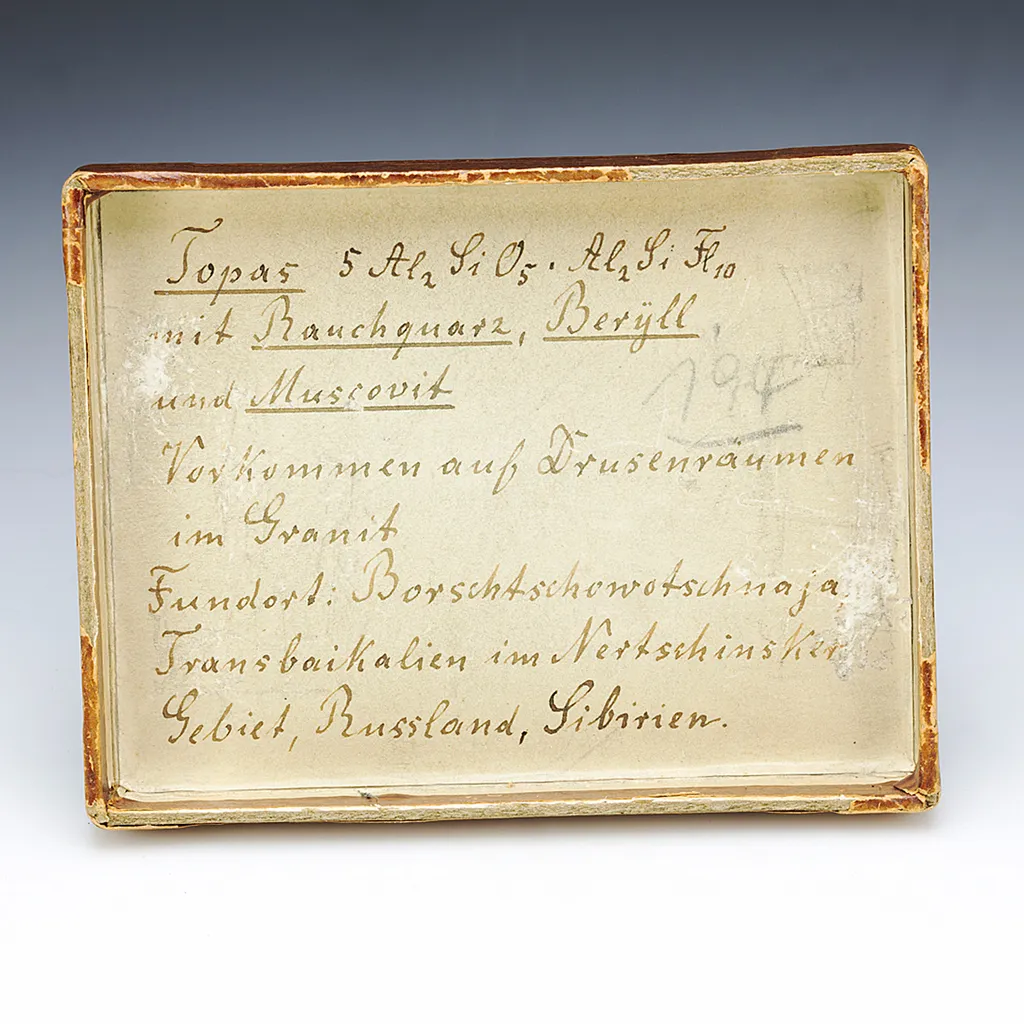 Topas 5 Al₂SiO₅ · Al₂SiFl₁₀
mit Rauchquarz, Berÿll
und Muscovit
194
Vorkommen auf Drusenräumen
im Granit
Fundort: Borschtschowotschnaja
Transbaikalien im Nertschinsker
Gebiet, Russland, Sibirien.